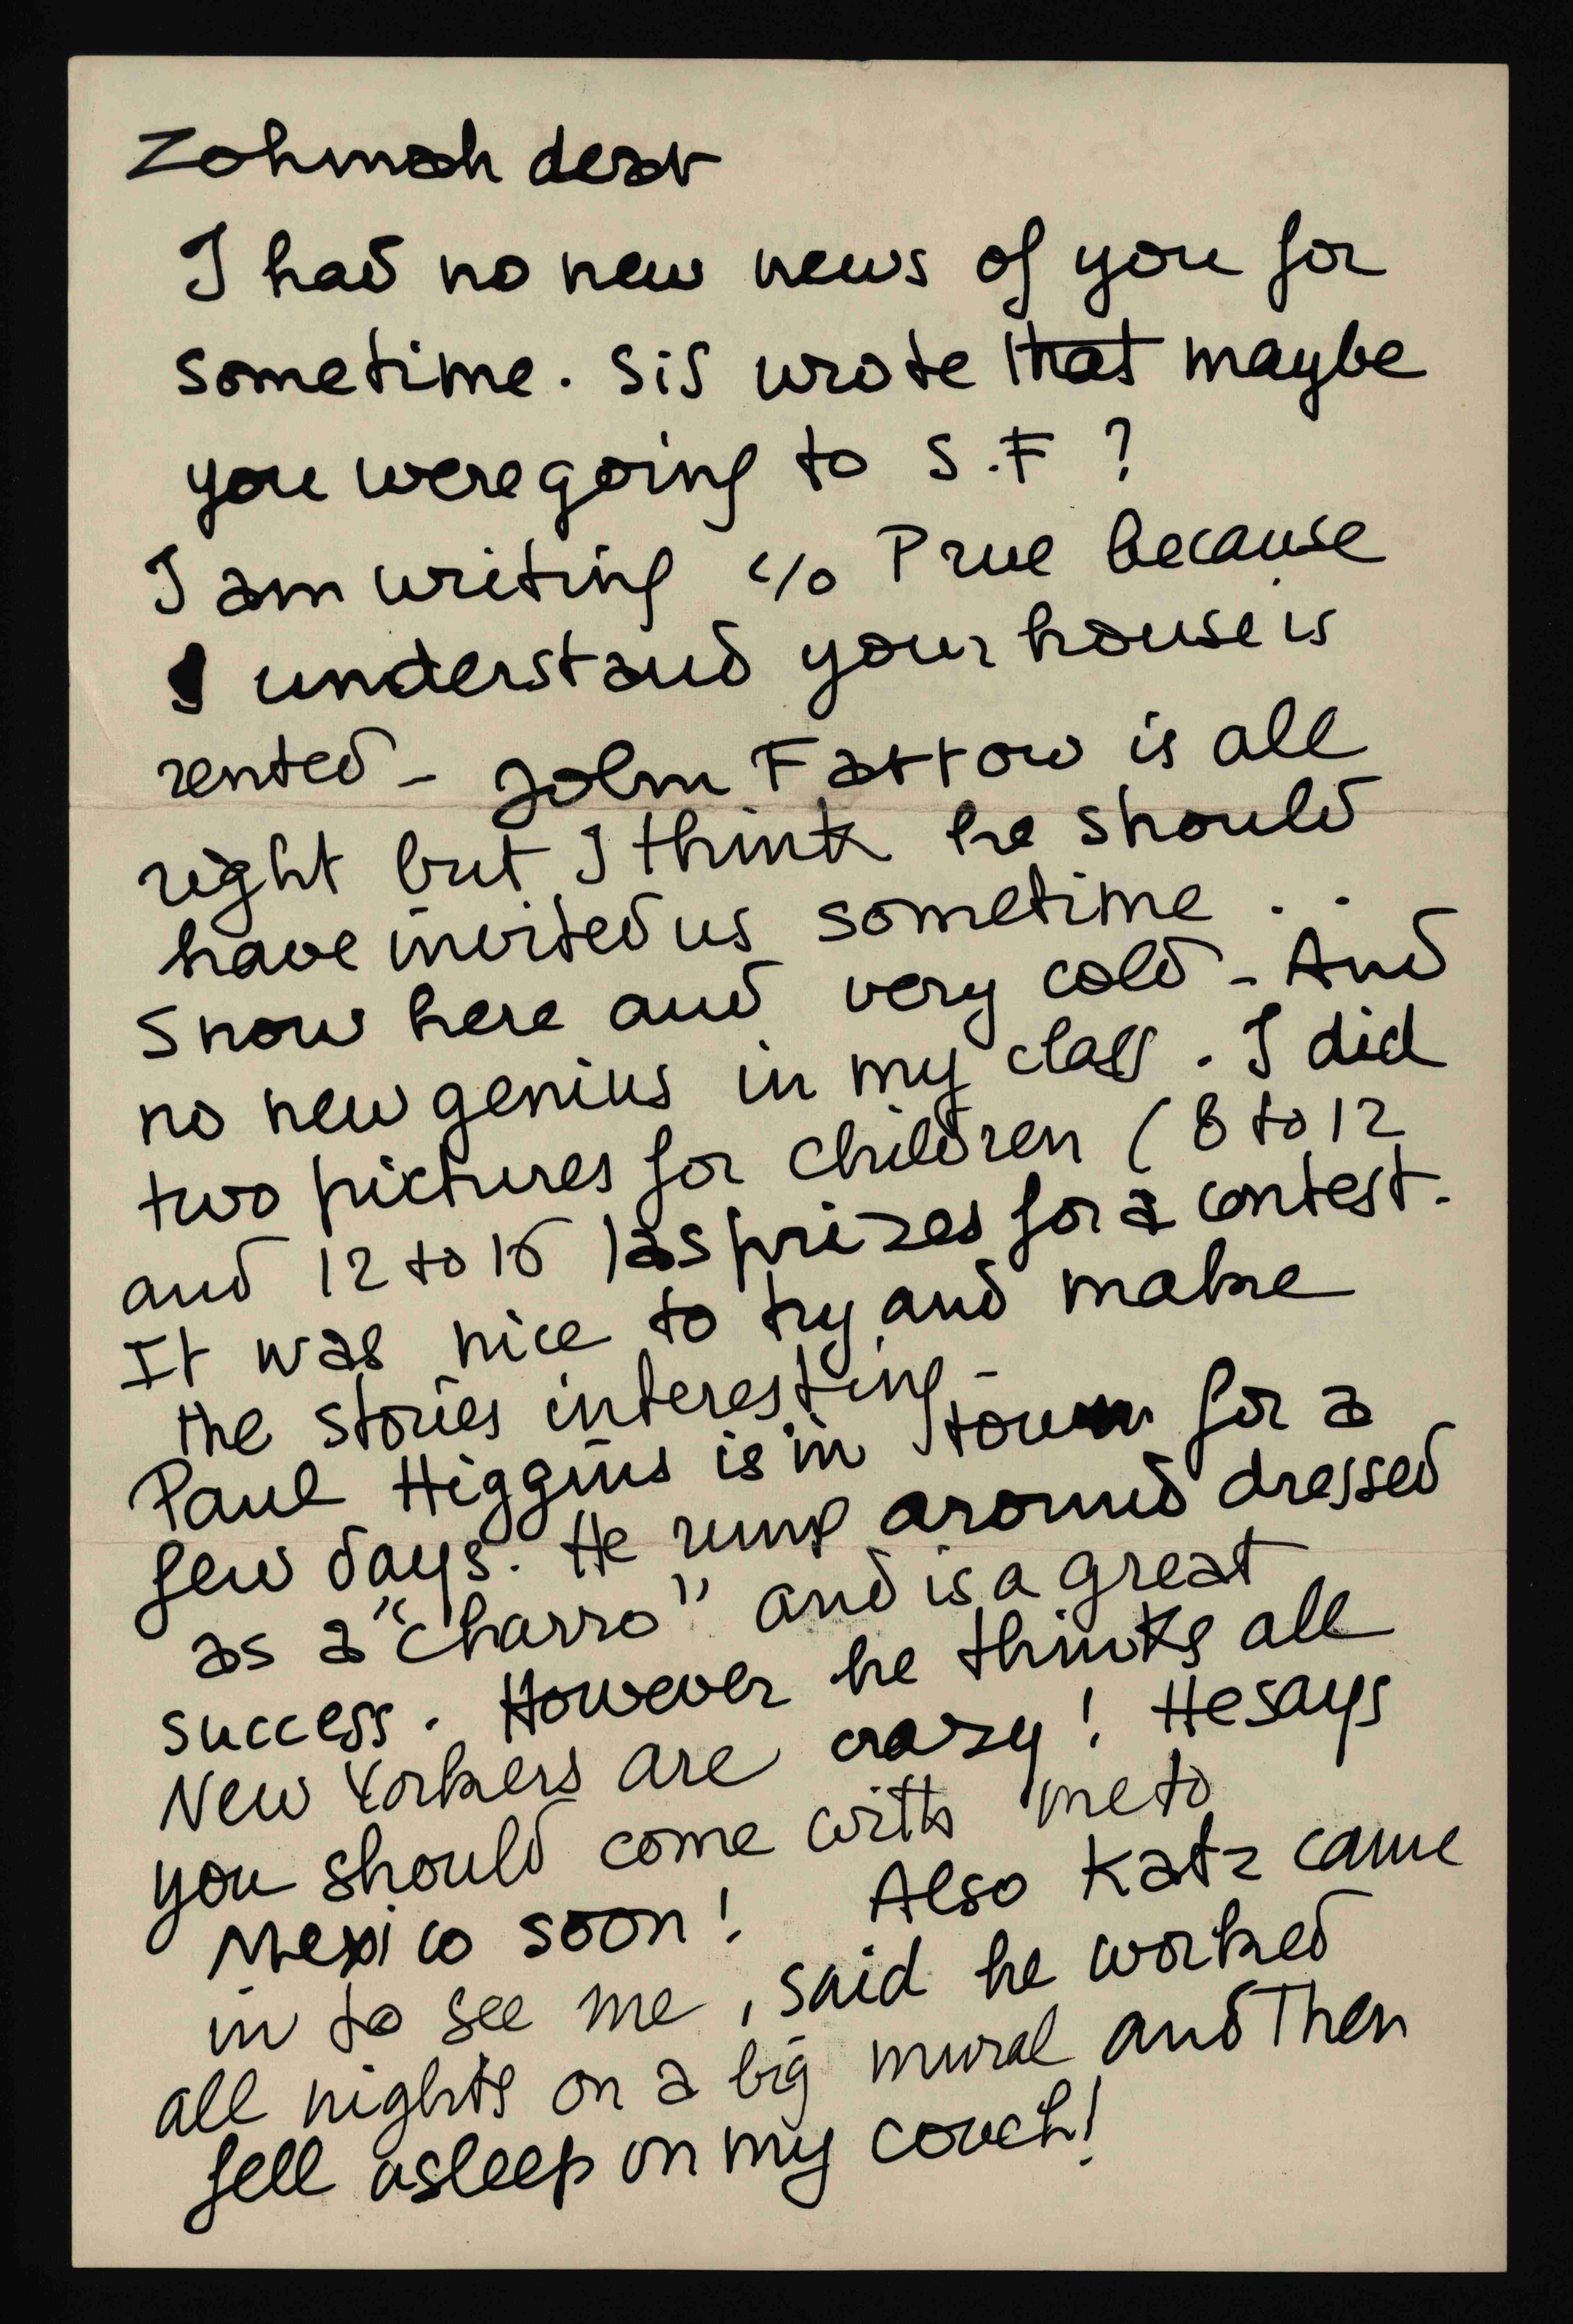 Zohmah dear
I had no new news of you for
sometime. Sis wrote that maybe
you were going to S.F ?
I am writing c/o Prue because
I understand your house is
rented - John Farrow is all
right but I think he should
have invited us sometime . .
Snow here and very cold - And
no new genius in my class . I did
two pictures for children ( 8 to 12
and 12 to 16 ) as prizes for a contest.
It was nice to try and make
the stories interesting -
Paul Higgins is in town for a
few days. He runs around dressed
as a "charro" and is a great
success. However he thinks all
New Yorkers are crazy! He says
you should come with me to
Mexico soon! Also Katz came
in to see me, said he worked
all nights on a big mural and then
fell asleep on my couch!